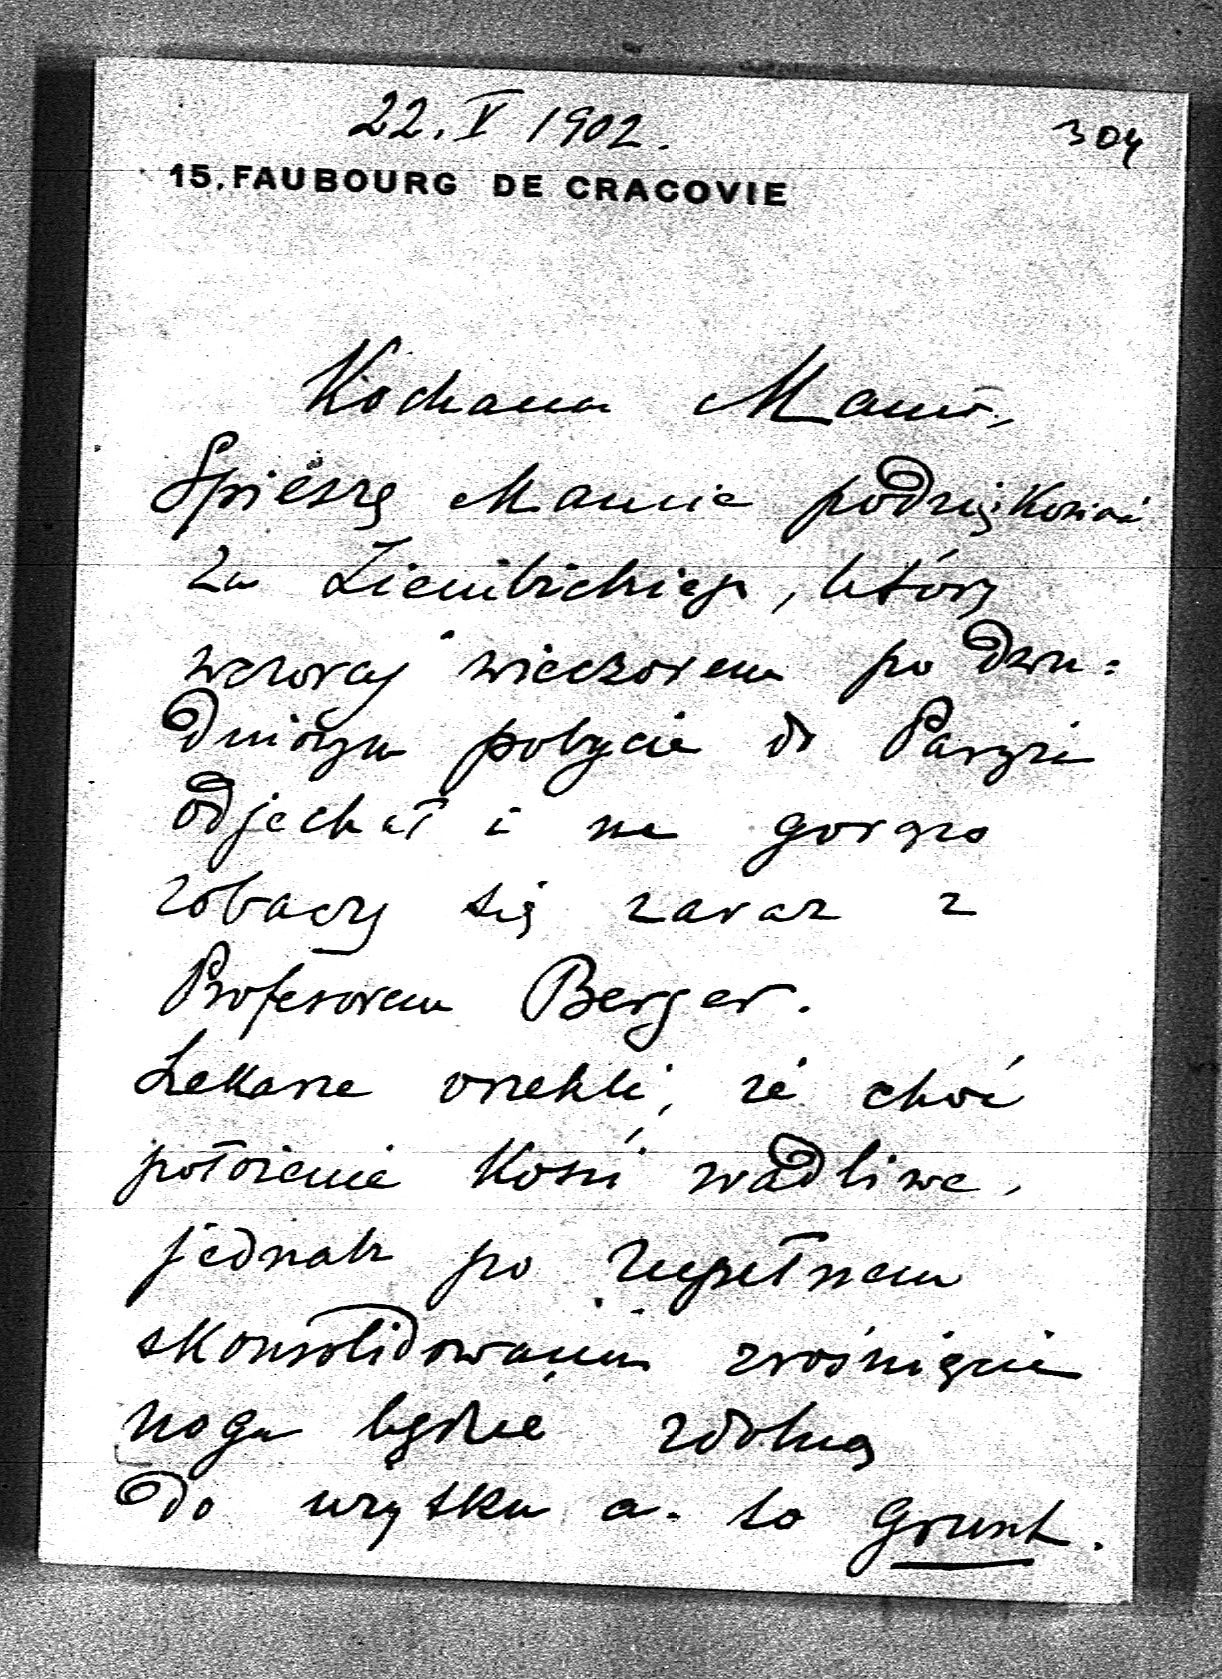 22. V 1902.
304
15, FAUBOURG DE CRACOVIE
Kochana Mamo,
Śpieszę Mamie podziękować
za Ziembickiego, który
wczoraj wieczorem po dwu=
dniowym pobycie do Paryża
odjechał i na gorąco
zobaczy się zaraz z
Profesorem Berger.
Lekarze orzekli, że choć
położenie kości wadliwe,
jednak po zupełnem
skonsolidowaniu zrośnięcia
noga będzie zdolną
do użytku a to grunt.